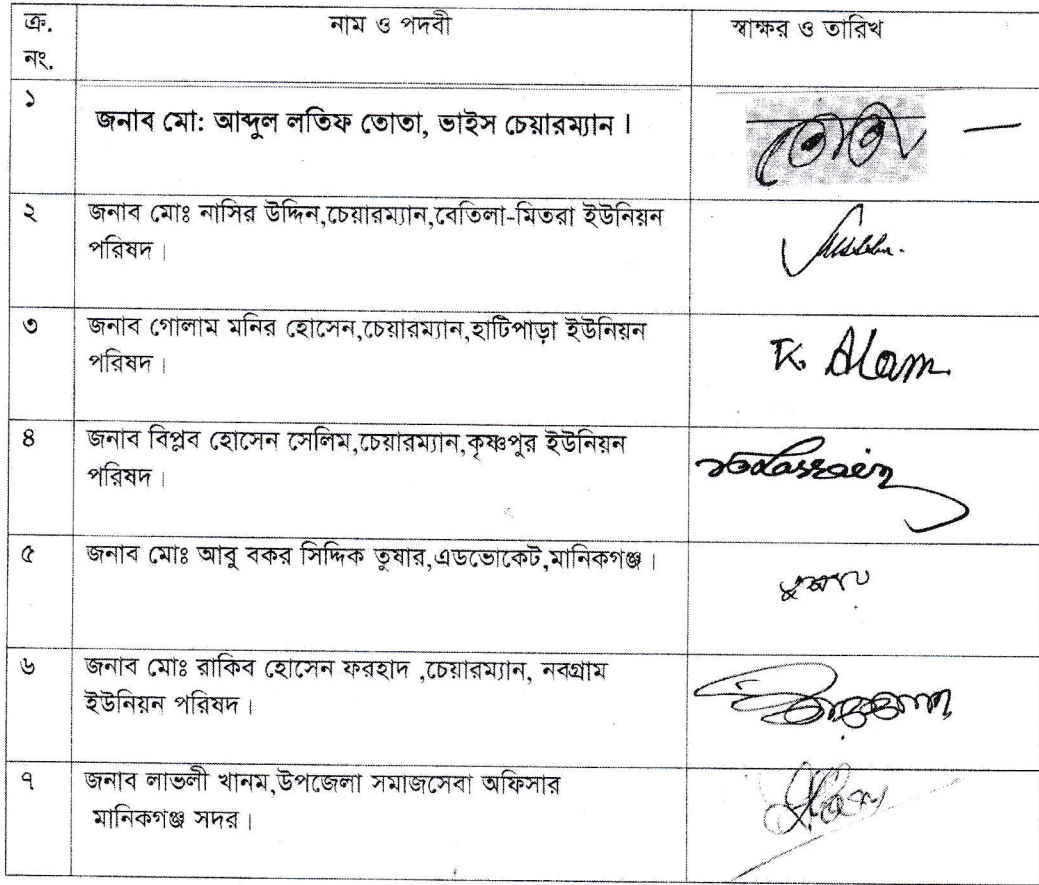 ক্র. নাম ও পদবী স্বাক্ষর ও তারিখ
নং.
১ জনাব মো: আব্দুল লতিফ তোতা, ভাইস চেয়ারম্যান। তোতা
২ জনাব মোঃ নাসির উদ্দিন,চেয়ারম্যান,বেতিলা-মিতরা ইউনিয়ন
পরিষদ।
৩ জনাব গোলাম মনির হোসেন,চেয়ারম্যান,হাটিপাড়া ইউনিয়ন
পরিষদ। K. Alam.
৪ জনাব বিপ্লব হোসেন সেলিম,চেয়ারম্যান,কৃষ্ণপুর ইউনিয়ন
পরিষদ।
৫ জনাব মোঃ আবু বকর সিদ্দিক তুষার,এডভোকেট,মানিকগঞ্জ।
৬ জনাব মোঃ রাকিব হোসেন ফরহাদ ,চেয়ারম্যান, নবগ্রাম
ইউনিয়ন পরিষদ।
৭ জনাব লাভলী খানম,উপজেলা সমাজসেবা অফিসার
মানিকগঞ্জ সদর।